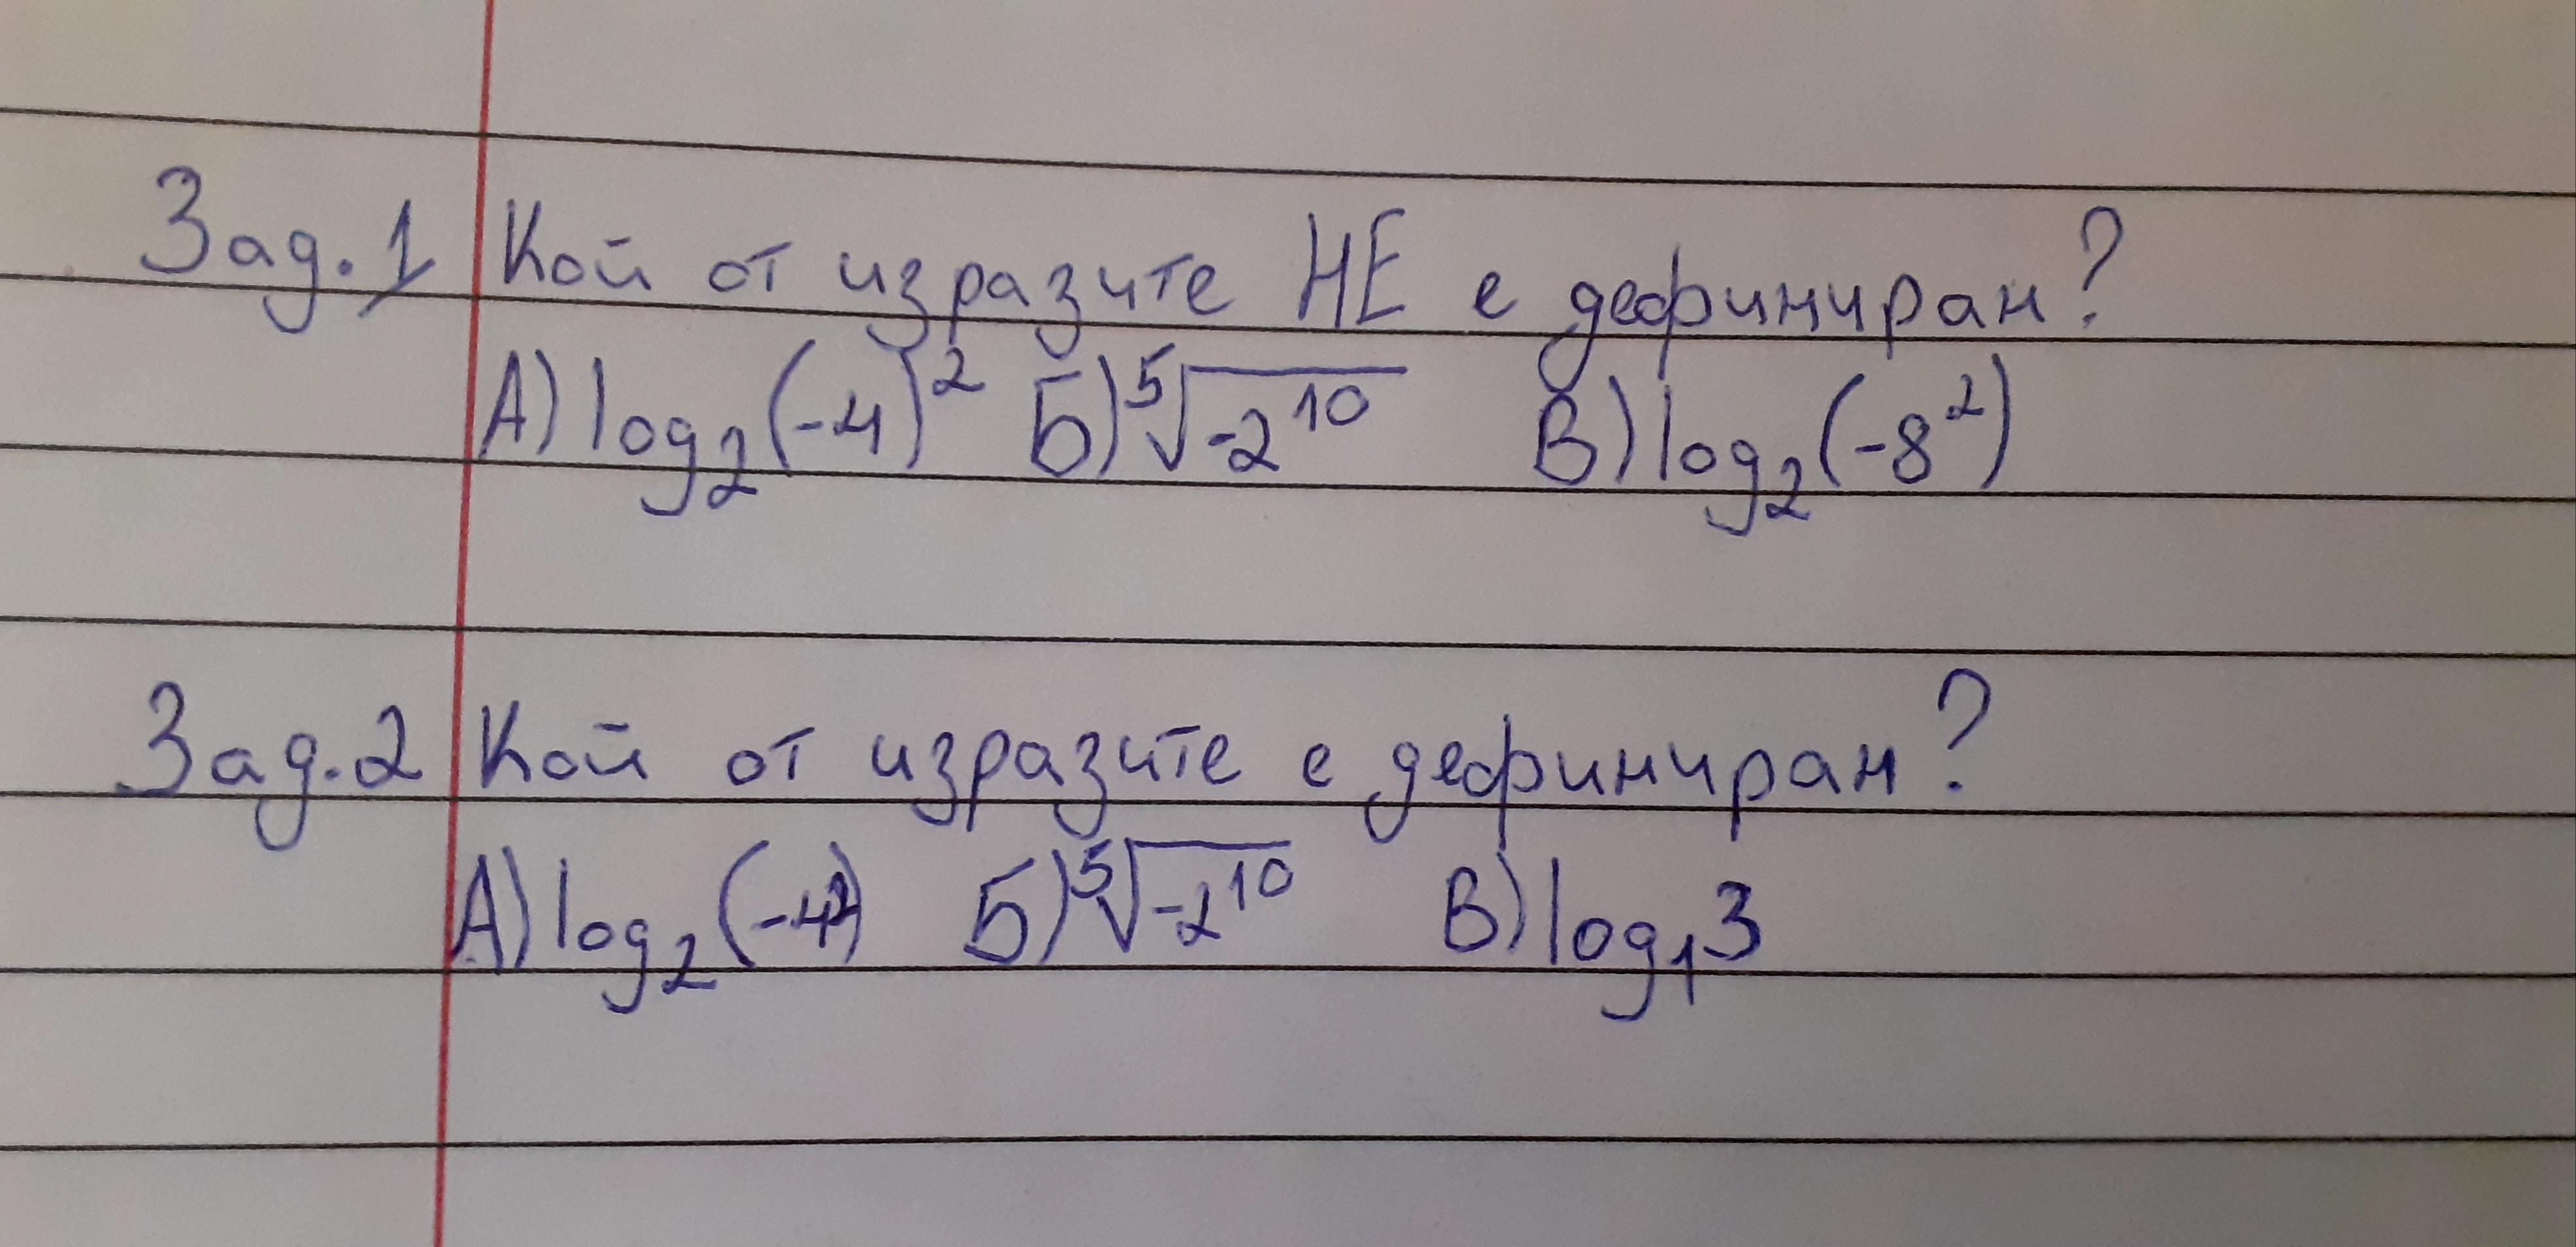 Зад.1 Кой от изразите НЕ е дефиниран?
А) log₂(-4)² Б) ⁵√-2¹⁰ В) log₂(-8²)
Зад.2 Кой от изразите е дефиниран?
А) log₂(-4²) Б) ⁵√-2¹⁰ В) log₁3